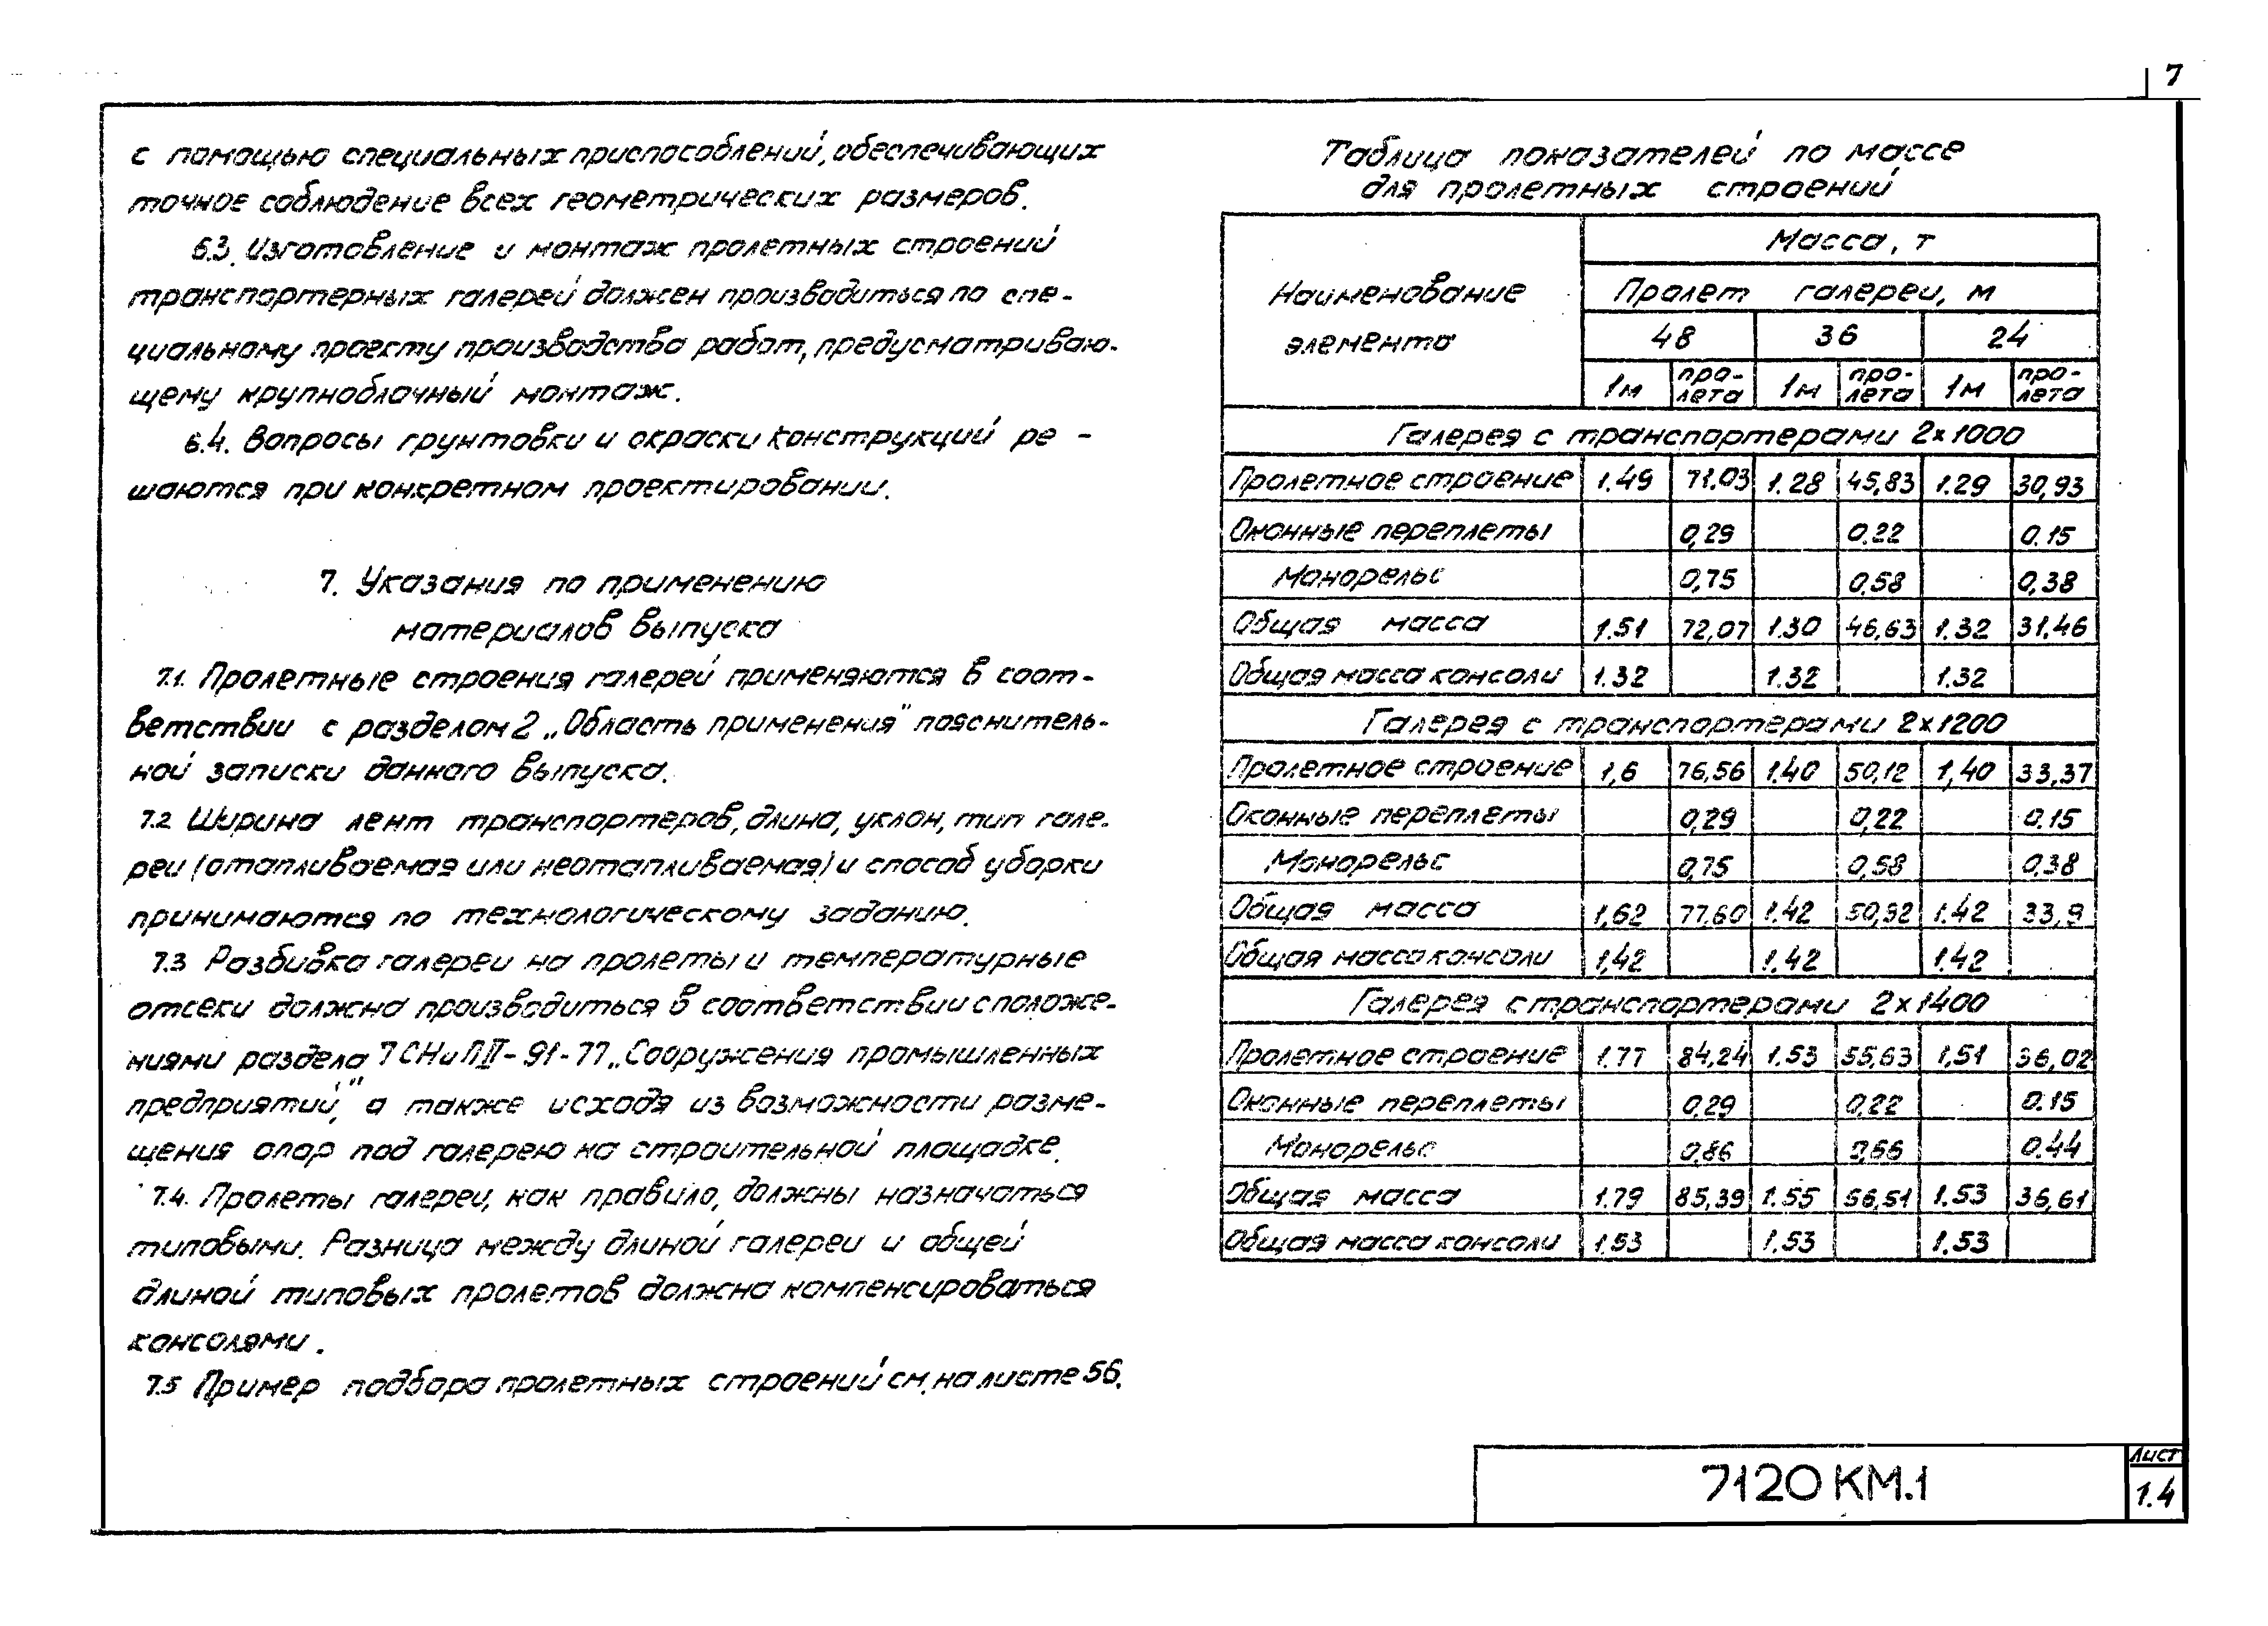 7
с помощью специальных приспособлений, обеспечивающих
точное соблюдение всех геометрических размеров.
6.3. Изготовление и монтаж пролетных строений
транспортерных галерей должен производиться по спе-
циальному проекту производства работ, предусматриваю-
щему крупноблочный монтаж.
6.4. Вопросы грунтовки и окраски конструкций ре -
шаются при конкретном проектировании.
7. Указания по применению
материалов выпуска
7.1. Пролетные строения галерей применяются в соот-
ветствии с разделом 2 „Область применения" пояснитель-
ной записки данного выпуска.
7.2 Ширина лент транспортеров, длина, уклон, тип гале-
реи (отапливаемая или неотапливаемая) и способ уборки
принимаются по технологическому заданию.
7.3 Разбивка галереи на пролеты и температурные
отсеки должна производиться в соответствии с положе-
ниями раздела 7 СНиП II-91-77 „Сооружения промышленных
предприятий", а также исходя из возможности разме-
щения опор под галерею на строительной площадке.
7.4. Пролеты галереи, как правило, должны назначаться
типовыми. Разница между длиной галереи и общей
длиной типовых пролетов должна компенсироваться
консолями.
7.5 Пример подбора пролетных строений см. на листе 56.
Таблица показателей по массе
для пролетных строений
Наименование элемента
Масса, т
Пролет галереи, м
48 36 24
1м про-лета 1м про-лета 1м про-лета
Галерея с транспортерами 2х1000
Пролетное строение 1.49 71.03 1.28 45,83 1.29 30,93
Оконные переплеты 0,29 0.22 0.15
Монорельс 0,75 0.58 0,38
Общая масса 1.51 72,07 1.30 46,63 1.32 31.46
Общая масса консоли 1.32 1.32 1.32
Галерея с транспортерами 2х1200
Пролетное строение 1,6 76,56 1.40 50,12 1,40 33,37
Оконные переплеты 0,29 0,22 0.15
Монорельс 0,75 0,58 0,38
Общая масса 1,62 77.60 1.42 50,92 1.42 33,9
Общая масса консоли 1,42 1.42 1.42
Галерея с транспортерами 2х1400
Пролетное строение 1.77 84,24 1.53 55,63 1,51 36,02
Оконные переплеты 0,29 0,22 0.15
Монорельс 0,86 0,66 0.44
Общая масса 1.79 85,39 1.55 56,51 1.53 36,61
Общая масса консоли 1.53 1.53 1.53
7120 КМ.1
Лист
1.4